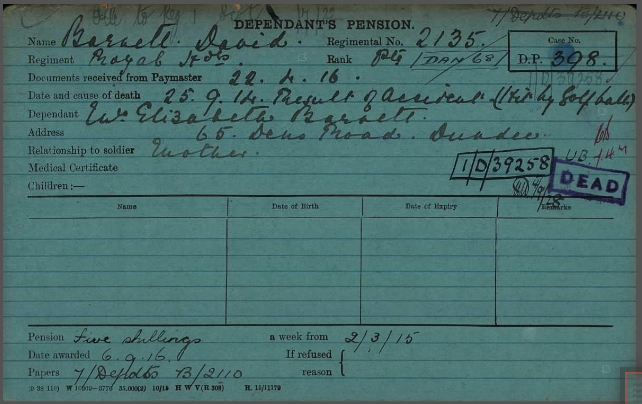 7/Depots B/2110
DEPENDANT'S PENSION.
Name Barnett. David. Regimental No. 2135. Case No.
Regiment Royal Hdrs. Rank Pte D.P. 398.
Documents received from Paymaster 22.4.16.
Date and cause of death 25.9.14. Result of accident (Hit by Golf ball)
Dependant Mrs Elizabeth Barnett.
Address 65. Dens Road. Dundee.
Relationship to soldier Mother.
Medical Certificate 1/D/39258
Children:— DEAD
Name Date of Birth Date of Expiry Remarks
Pension Five shillings a week from 2/3/15
Date awarded 6.9.16. If refused
Papers 7/Depots B/2110 reason
35,000(2) 10/15 H W V(R 308) H. 15/11179